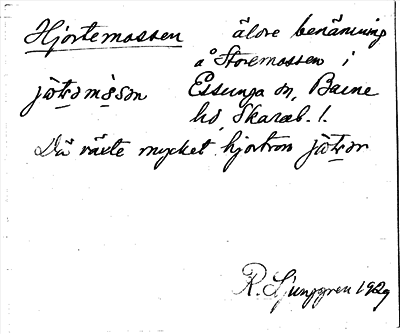 Hjortemossen äldre benämning
å Storemossen i
jo̊tәmòsәn Essunga sn, Barne
hd, Skarab. l.
Då växte mycket hjortron jòtәr
R. Ljunggren 1929